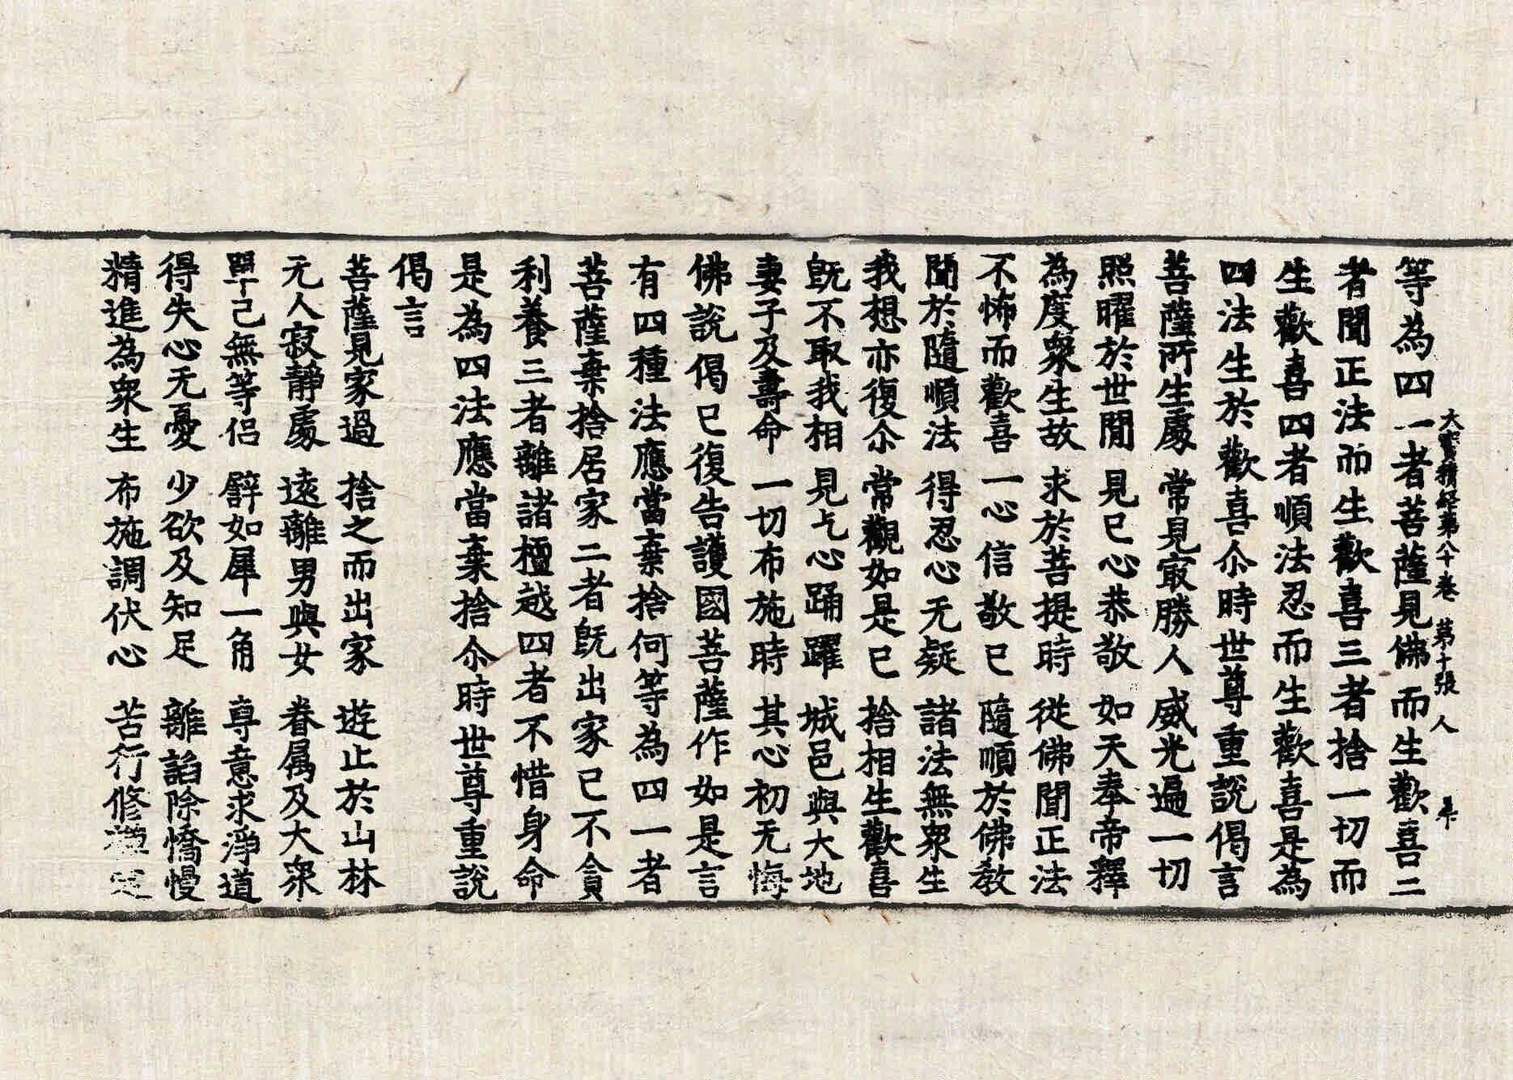 大寶積経第八十卷 第十張 人
等為四一者菩薩見佛而生歡喜二
者聞正法而生歡喜三者捨一切而
生歡喜四者順法忍而生歡喜是為
四法生於歡喜尒時世尊重說偈言
菩薩所生處 常見㝡勝人 威光遍一切
照曜於世間 見已心恭敬 如天奉帝釋
為度衆生故 求於菩提時 從佛聞正法
不怖而歡喜 一心信敬已 隨順於佛教
聞於隨順法 得忍心无疑 諸法無衆生
我想亦復尒 常觀如是已 捨相生歡喜
旣不取我相 見乞心踊躍 城邑與大地
妻子及壽命 一切布施時 其心初无悔
佛說偈已復告護國菩薩作如是言
有四種法應當棄捨何等為四一者
菩薩棄捨居家二者旣出家已不貪
利養三者離諸檀越四者不惜身命
是為四法應當棄捨尒時世尊重說
偈言
菩薩見家過 捨之而出家 遊止於山林
无人寂靜處 遠離男與女 眷属及大衆
單己無等侣 譬如犀一角 專意求淨道
得失心无憂 少欲及知足 離諂除憍慢
精進為衆生 布施調伏心 苦行修禪定